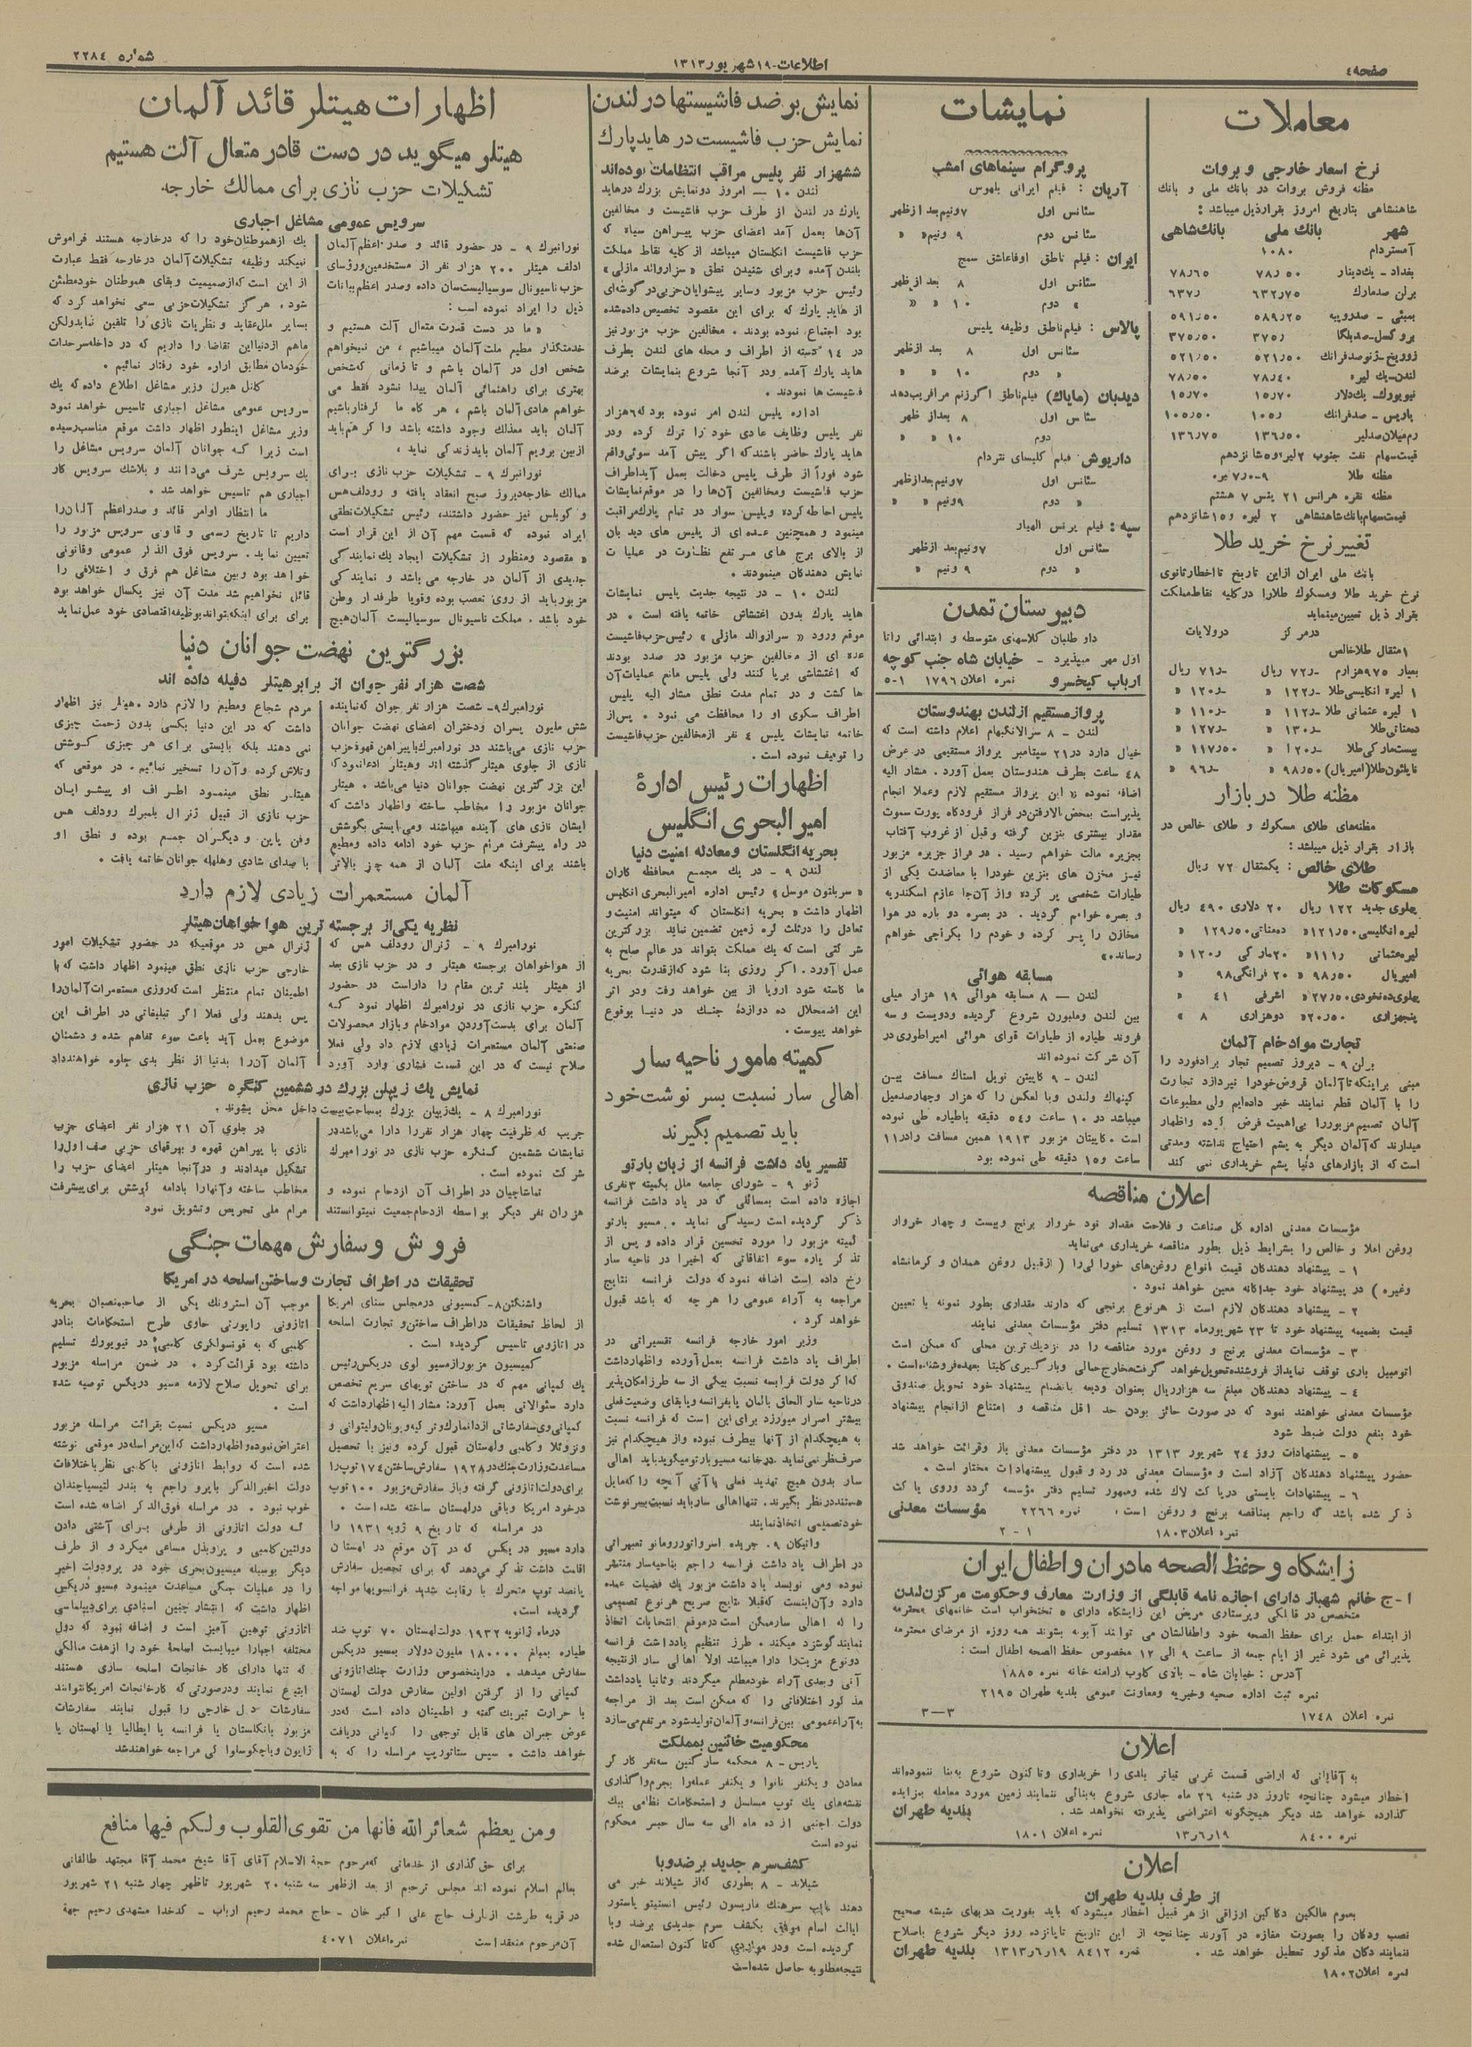 صفحه۴
اطلاعات-۱۹ شهریور ۱۳۱۳
شماره ۲۲۸۴
معاملات
نرخ اسعار خارجی و بروات
مظنه فروش بروات در بانك ملی و بانك
شاهنشاهی بتاریخ امروز بقرارذیل میباشد :
شهر بانك ملی بانك شاهی
آمستردام ۱۰۸۰
بغداد - یك دینار ۷۸٫۵۰ ۷۸٫۶۵
برلن صدمارك ۶۳۲٫۷۵ ۶۳۷٫
بمبئی - صدروپیه ۵۸۹٫۲۵ ۵۹۱٫۵۰
بروکسل-صدبلگا ۳۷۵٫ ۳۷۵٫۵۰
زوریخ-ژنوصدفرانك ۵۲۱٫۵۰ ۵۲۱٫۵۰
لندن-یك لیره ۷۸٫۴۰ ۷۸٫۵۰
نیویورك-یك دلار ۱۵٫۷۰ ۱۵٫۷۰
پاریس - صدفرانك ۱۰۵٫ ۱۰۵٫۵۰
رم میلان صدلیر ۱۳۶٫۵۰ ۱۳۶٫۷۵
قیمت سهام نفت جنوب ۲ لیره و۵ شانزدهم
مظنه نقره هرانس ۲۱ پنس ۷ هشتم
قیمت سهام بانك شاهنشاهی ۲ لیره و۱۵ شانزدهم
تغییر نرخ خرید طلا
بانك ملی ایران ازاین تاریخ تا اخطارثانوی
نرخ خرید طلا ومسکوك طلارا درکلیه نقاط مملکت
بقرار ذیل تعیین مینماید
درمرکز درولایات
۱مثقال طلاخالص
بعیار ۹۷۵هزارم ۷۲٫- ریال ۷۱٫- ریال
۱ لیره انگلیسی طلا ۱۲۲٫- « ۱۲۰٫- «
۱ لیره عثمانی طلا ۱۱۲٫- « ۱۱۰٫- «
ده مناتی طلا ۱۳۰٫- « ۱۲۷٫- «
بیست مارکی طلا ۱۲۰٫- « ۱۱۷٫۵۰ «
ناپلئون طلا(امپریال) ۹۸٫۵۰ « ۹۶٫- «
مظنه طلا در بازار
مظنه های طلای مسکوك و طلای خالص در
بازار بقرار ذیل میباشد:
طلای خالص : یکمثقال ۷۲ ریال
مسکوکات طلا
پهلوی جدید ۱۲۲ ریال ۲۰ دلاری ۴۹۰ ریال
لیره انگلیسی ۱۲۱٫۵۰« ده مناتی ۱۲۹٫۵۰ «
لیره عثمانی ۱۱۱٫« ۲۰مارکی ۱۲۰٫ «
امپریال ۹۸٫۵۰ « ۲۰فرانگی ۹۸ «
پهلوی ده نخودی ۲۷٫۵۰« اشرفی ۴۱ «
پنجهزاری ۲۰٫۵۰« دوهزاری ۸ «
تجارت مواد خام آلمان
برلن ۹ - دیروز تصمیم تجار برادفورد را
مبنی براینکه تا آلمان قروض خودرا نپردازد تجارت
را با آلمان قطع نمایند خبر داده ایم ولی مطبوعات
آلمان تصمیم مزبوررا بی اهمیت فرض کرده واظهار
میدارند که آلمان دیگر به پشم احتیاج نداشته ومدتی
است که از بازارهای دنیا پشم خریداری نمی کند
نمایشات
پروگرام سینماهای امشب
آریان : فیلم ایرانی بلهوس
سئانس اول ۷ونیم بعد ازظهر
سئانس دوم ۹ ونیم « «
ایران : فیلم ناطق اوفاعاشق سمج
سئانس اول ۸ بعد ازظهر
« دوم ۱۰ « «
پالاس : فیلم ناطق وظیفه پلیس
سئانس اول ۸ بعد ازظهر
« دوم ۱۰ « «
دیدبان (مایاك) فیلم ناطق اگرزنم مرافریب دهد
سئانس اول ۸ بعداز ظهر
دوم ۱۰ « «
داریوش فیلم کلیسای نتردام
سئانس اول ۷ونیم بعدازظهر
« دوم ۹ونیم « «
سپه : فیلم پرنس الهیار
سئانس اول ۷ونیم بعد ازظهر
« دوم ۹ ونیم « «
دبیرستان تمدن
داو طلبان کلاسهای متوسطه و ابتدائی راتا
اول مهر میپذیرد - خیابان شاه جنب کوچه
ارباب کیخسرو نمره اعلان ۱۷۹۶ ۱-۵
پرواز مستقیم از لندن بهندوستان
لندن - ۸ سرالانکبهام اعلام داشته است که
خیال دارد در۲۱ سپتامبر پرواز مستقیمی در عرض
۴۸ ساعت بطرف هندوستان بعمل آورد . مشار الیه
اضافه نموده « این پرواز مستقیم لازم وعملا انجام
پذیراست بمحض بالارفتن در فراز فرودگاه پورت سموت
مقدار بیشتری بنزین گرفته و قبل از غروب آفتاب
بجزیره مالت خواهم رسید . در فراز جزیره مزبور
نیز مخزن های بنزین خودرا با معاضدت یکی از
طیارات شخصی پر کرده واز آن جا عازم اسکندریه
و بصره خواهم گردید . در بصره دو باره در هوا
مخازن را پر کرده و خودم را بکراچی خواهم
رساند»
مسابقه هوائی
لندن - ۸ مسابقه هوائی ۱۹ هزار میلی
بین لندن وملبورن شروع گردیده ودویست و سه
فروند طیاره از طیارات قوای هوائی امپراطوری در
آن شرکت نموده اند
لندن - ۹ کاپیتن نویل استاك مسافت بین
کپنهاك ولندن وبا لعکس را که هزار وچهارصدمیل
میباشد در ۱۰ ساعت و۵۴ دقیقه باطیاره طی نموده
است ۰ کاپیتان مزبور ۱۹۱۳ همین مسافت رادر۱۱
ساعت و۱۵ دقیقه طی نموده بود
اعلان مناقصه
مؤسسات معدنی اداره کل صناعت و فلاحت مقدار نود خروار برنج وبیست و چهار خروار
روغن اعلا و خالص را بشرایط ذیل بطور مناقصه خریداری می نماید
۱ - پیشنهاد دهندگان قیمت انواع روغن های خوراکی را ( ازقبیل روغن همدان و کرمانشاه
وغیره ) در پیشنهاد خود جداگانه معین خواهد نمود .
۲ - پیشنهاد دهندگان لازم است از هرنوع برنجی که دارند مقداری بطور نمونه با تعیین
قیمت بضمیمه پیشنهاد خود تا ۲۳ شهریورماه ۱۳۱۳ تسلیم دفتر مؤسسات معدنی نمایند
۳ - مؤسسات معدنی برنج و روغن مورد مناقصه را در نزدیك ترین محلی که ممکن است
اتومبیل باری توقف نماید از فروشنده تحویل خواهد گرفت مخارج حمالی وبارگیری کلیتا بعهده فروشنده است .
۴ - پیشنهاد دهندگان مبلغ سه هزارریال بعنوان ودیعه بانضمام پیشنهاد خود تحویل صندوق
مؤسسات معدنی خواهند نمود که در صورت حائز بودن حد اقل مناقصه و امتناع ازانجام پیشنهاد
خود بنفع دولت ضبط شود
۵ - پیشنهادات روز ۲۴ شهریور ۱۳۱۳ در دفتر مؤسسات معدنی باز وقرائت خواهد شد
حضور پیشنهاد دهندگان آزاد است و مؤسسات معدنی در رد و قبول پیشنهادات مختار است .
۶ - پیشنهادات بایستی درپاکت لاك شده وممهور تسلیم دفتر مؤسسه گردد وروی پاکت
ذکر شده باشد که راجع بمناقصه برنج و روغن است . نمره ۲۲۶۶ مؤسسات معدنی
نمره اعلان ۱۸۰۳ ۱ - ۲
زایشگاه و حفظ الصحه مادران و اطفال ایران
ا - ج خانم شهباز دارای اجازه نامه قابلگی از وزارت معارف وحکومت مرکز لندن
متخصص در قابلگی وپرستاری مریض این زایشگاه دارای ۵ تختخواب است خانمهای محترمه
از ابتداء حمل برای حفظ الصحه خود واطفالشان می توانند آبونه بشوند همه روزه از مرضای محترمه
پذیرائی می شود غیر از ایام جمعه از ساعت ۹ الی ۱۲ مخصوص حفظ الصحه اطفال است :
آدرس : خیابان شاه - بالای کلوب ارامنه خانه نمره ۱۸۸۵
نمره ثبت اداره صحیه وخیریه ومعاونت عمومی بلدیه طهران ۲۱۹۵
نمره اعلان ۱۷۴۸ ۳-۳
اعلان
به آقایانی که اراضی قسمت غربی تیاتر بلدی را خریداری وتا کنون شروع به بنا ننموده اند
اخطار میشود چنانچه تاروز دو شنبه ۲۶ ماه جاری شروع به بنائی ننمایند زمین مورد معامله بمزایده
گذارده خواهد شد دیگر هیچگونه اعتراضی پذیرفته نخواهد شد. بلدیه طهران
نمره ۸۴۰۰ ۱۳٫۶٫۱۹ نمره اعلان ۱۸۰۱
اعلان
از طرف بلدیه طهران
بعموم مالکین دکاکین ارزاقی از هر قبیل اخطار میشود که باید بفوریت دربهای شیشه صحیح
نصب ودکان را بصورت مغازه در آورند چنانچه از این تاریخ تاپانزده روز دیگر شروع باصلاح
ننمایند دکان مذکور تعطیل خواهد شد . نمره ۸۴۱۲ ۱۳۱۳٫۶٫۱۹ بلدیه طهران
نمره اعلان ۱۸۰۲
نمایش بر ضد فاشیستها در لندن
نمایش حزب فاشیست در هاید پارك
ششهزار نفر پلیس مراقب انتظامات بوده اند
لندن ۱۰ - امروز دونمایش بزرك درهاید
پارك در لندن از طرف حزب فاشیست و مخالفین
آن ها بعمل آمد اعضای حزب پیراهن سیاه که
حزب فاشیست انگلستان میباشد از کلیه نقاط مملکت
بلندن آمده وبرای شنیدن نطق «سراز والد مازلی»
رئیس حزب مزبور وسایر پیشوایان حزبی در گوشه ای
از هاید پارك که برای این مقصود تخصیص داده شده
بود اجتماع نموده بودند . مخالفین حزب مزبور نیز
در ۱۴ دسته از اطراف و محله های لندن بطرف
هاید پارك آمده ودر آنجا شروع بنمایشات برضد
فاشیست ها نمودند .
اداره پلیس لندن امر نموده بود که ۶هزار
نفر پلیس وظایف عادی خود را ترك کرده ودر
هاید پارك حاضر باشند که اگر پیش آمد سوئی واقع
شود فوراً از طرف پلیس دخالت بعمل آید اطراف
حزب فاشیست ومخالفین آن ها را در موقع نمایشات
پلیس احاطه کرده وپلیس سوار در تمام پارك مراقبت
مینمود و همچنین عده ای از پلیس های دیدبان
از بالای برج های مرتفع نظارت در عملیات
نمایش دهندگان مینمودند .
لندن ۱۰ - در نتیجه جدیت پلیس نمایشات
هاید پارك بدون اغتشاش خاتمه یافته است . در
موقع ورود « سرازوالد مازلی » رئیس حزب فاشیست
عده ای از مخالفین حزب مزبور در صدد بودند
که اغتشاشی برپا کنند ولی پلیس مانع عملیات آن
ها گشت و در تمام مدت نطق مشار الیه پلیس
اطراف سکوی او را محافظت می نمود . پس از
خاتمه نمایشات پلیس ۴ نفر ازمخالفین حزب فاشیست
را توقیف نموده است .
اظهارات رئیس ادارهٔ
امیرالبحری انگلیس
بحریه انگلستان ومعادله امنیت دنیا
لندن ۹ - در یك مجمع محافظه کاران
« سربلتون مونسل » رئیس اداره امیرالبحری انگلیس
اظهار داشت « بحریه انگلستان که میتواند امنیت و
تعادل را درثلث کره زمین تضمین نماید بزرگترین
شرکتی است که یك مملکت بتواند در عالم صلح به
عمل آورد. اگر روزی بنا شود که از قدرت بحریه
ما کاسته شود اروپا از بین خواهد رفت ودر اثر
این اضمحلال ده دوازده جنك در دنیا بوقوع
خواهد پیوست .
کمیته مامور ناحیه سار
اهالی سار نسبت بسر نوشت خود
باید تصمیم بگیرند
تفسیر یاد داشت فرانسه از زبان بارتو
ژنو ۹ - شورای جامعه ملل بکمیته ۳نفری
اجازه داده است بمسائلی که در یاد داشت فرانسه
ذکر گردیده است رسیدگی نماید . مسیو بارتو
کمیته مزبور را مورد تحسین قرار داده و پس از
تذکر پاره سوء اتفاقاتی که اخیرا در ناحیه سار
رخ داده است اضافه نمود که دولت فرانسه نتایج
مراجعه به آراء عمومی را هر چه که باشد قبول
خواهد کرد .
وزیر امور خارجه فرانسه تفسیراتی در
اطراف یاد داشت فرانسه بعمل آورده واظهارداشت
که اگر دولت فرانسه نسبت بیکی از سه طرز امکان پذیر
درناحیه سار الحاق بالمان یا بفرانسه ویا بقای وضعیت فعلی
بیشتر اصرار میورزد برای این است که فرانسه نسبت
به هیچکدام از آنها بیطرف نبوده واز هیچکدام نیز
صرف نظر نمی نماید. درخاتمه مسیو بارتو میگوید باید اهالی
سار بدون هیچ تهدید فعلی یا آتی آنچه را که مایل
هستند در نظر بگیرند. تنها اهالی سار باید نسبت بسر نوشت
خود تصمیمی اتخاذ نمایند
واتیکان ۹. جریده اسرواتور رومانو تعبیراتی
در اطراف یاد داشت فرانسه راجع بناحیه سار منتشر
نموده ومی نویسد یاد داشت مزبور یك فضیلت عمده
دارد وآن اینست که قبلا نتایج صریح هرنوع تصمیمی
را که اهالی سار ممکن است در موقع انتخابات اتخاذ
نمایند گوشزد میکند . طرز تنظیم یادداشت فرانسه
دونوع مزیت را دارا میباشد اولا اهالی سار از نتیجه
آنی وبعدی آراء خود مطلع میگردند وثانیا یادداشت
مذکور اختلافاتی را که ممکن است بعد از مراجعه
به آراء عمومی بین فرانسه وآلمان تولید شود مرتفع می سازد
محکومیت خائنین بمملکت
پاریس - ۸ محکمه سارگمین سه نفر کارگر
معادن و یکنفر نانوا و یکنفر عمله را بجرم واگذاری
نقشه های یك توپ مسلسل و استحکامات نظامی بیك
دولت اجنبی از ده ماه الی سه سال حبس محکوم
نموده است
کشف سرم جدید برضد وبا
شیلاند - ۸ بطوری که از شیلاند خبر می
دهند نایب سرهنك ماریسون رئیس انستیتو پاستور
ایالت اسام موفق بکشف سرم جدیدی برضد وبا
گردیده است ودر مواردی که تا کنون استعمال شده
نتیجه مطلوبه حاصل شده است
اظهارات هیتلر قائد آلمان
هیتلر میگوید در دست قادر متعال آلت هستیم
تشکیلات حزب نازی برای ممالك خارجه
سرویس عمومی مشاغل اجباری
نورانبرك ۹ - در حضور قائد و صدر اعظم آلمان
ادلف هیتلر ۲۰۰ هزار نفر از مستخدمین ورؤسای
حزب ناسیونال سوسیالیست سان داده وصدر اعظم بیانات
ذیل را ایراد نموده است:
« ما در دست قدرت متعال آلت هستیم و
خدمتگذار مطیع ملت آلمان میباشیم ، من نمیخواهم
شخص اول در آلمان باشم و تا زمانی که شخص
بهتری برای راهنمائی آلمان پیدا نشود فقط می
خواهم هادی آلمان باشم ، هر گاه ما گرفتار باشیم
آلمان باید معذلك وجود داشته باشد واگر هم باید
ازبین برویم آلمان باید زندگی نماید ،
نورانبرك ۹ - تشکیلات حزب نازی برای
ممالك خارجه دیروز صبح انعقاد یافته و رودلف هس
و گوبلس نیز حضور داشتند، رئیس تشکیلات نطقی
ایراد نموده که قسمت مهم آن از این قرار است
« مقصود ومنظور از تشکیلات ایجاد یك نمایندگی
جدیدی از آلمان در خارجه می باشد و نمایندگی
مزبور باید از روی تعصب بوده وقویا طرفدار وطن
خود باشد . مملکت ناسیونال سوسیالیست آلمان هیچ
یك ازهموطنان خود را که درخارجه هستند فراموش
نمیکند وظیفه تشکیلات آلمان درخارجه فقط عبارت
از این است که از صمیمیت وبقای هموطنان خود مطمئن
شود . هرگز تشکیلات حزبی سعی نخواهد کرد که
بسایر ملل عقاید و نظریات نازی را تلقین نماید ولکن
ماهم ازدنیا این تقاضا را داریم که در داخله سرحدات
خودمان مطابق اراده خود رفتار نمائیم .
کانل هیرل وزیر مشاغل اطلاع داده که یك
سرویس عمومی مشاغل اجباری تاسیس خواهد نمود
وزیر مشاغل اینطور اظهار داشت موقع مناسب رسیده
است زیرا که جوانان آلمان سرویس مشاغل را
یك سرویس شرف می دانند و بلاشك سرویس کار
اجباری هم تاسیس خواهد شد .
ما انتظار اوامر قائد و صدراعظم آلمان را
داریم تا تاریخ رسمی و قانونی سرویس مزبور را
تعیین نماید. سرویس فوق الذکر عمومی وقانونی
خواهد بود وبین مشاغل هم فرق و اختلافی را
قائل نخواهیم شد مدت آن نیز یکسال خواهد بود
برای برای اینکه بتواند بوظیفه اقتصادی خود عمل نماید
بزرگترین نهضت جوانان دنیا
شصت هزار نفر جوان از برابر هیتلر دفیله داده اند
نورامبرك ۹- شصت هزار نفر جوان که نماینده
شش ملیون پسران ودختران اعضای نهضت جوانان
حزب نازی می باشند در نورامبرك با پیراهن قهوه حزب
نازی از جلوی هیتلر گذشته اند وهیتلر ادعا نمود که
این بزرگترین نهضت جوانان دنیا می باشد . هیتلر
جوانان مزبور را مخاطب ساخته واظهار داشت که
ایشان نازی های آینده میباشند ومی بایستی بکوشش
در راه پیشرفت مرام حزب خود ادامه داده ومطیع
باشند برای اینکه ملت آلمان از همه چیز بالاتر
مردم شجاع ومطیع را لازم دارد. هیتلر نیز اظهار
داشت که در این دنیا بکسی بدون زحمت چیزی
نمی دهند بلکه بایستی برای هر چیزی کوشش
وتلاش کرده وآن را تسخیر نمائیم. در موقعی که
هیتلر نطق مینمود اطراف او پیشوایان
حزب نازی از قبیل ژنرال بلمبرك رودلف هس
وفن پاپن و دیگران جمع بوده و نطق او
با صدای شادی وهلهله جوانان خاتمه یافت .
آلمان مستعمرات زیادی لازم دارد
نظریه یکی از برجسته ترین هوا خواهان هیتلر
نورامبرك ۹ - ژنرال رودلف هس که
از هواخواهان برجسته هیتلر و در حزب نازی بعد
از هیتلر بلند ترین مقام را داراست در حضور
کنگره حزب نازی در نورامبرك اظهار نمود که
آلمان برای بدست آوردن مواد خام وبازار محصولات
صنعتی آلمان مستعمرات زیادی لازم داد ولی فعلا
صلاح نیست که در این قسمت فشاری وارد آورد
ژنرال هس در موقعیکه در حضور تشکیلات امور
خارجی حزب نازی نطق مینمود اظهار داشت که با
اطمینان تمام منتظر است که روزی مستعمرات آلمان را
پس بدهند ولی فعلا اگر تبلیغاتی در اطراف این
موضوع بعمل آید باعث سوء تفاهم شده و دشمنان
آلمان آن را بدنیا از نظر بدی جلوه خواهند داد
نمایش یك زیپلن بزرك در ششمین کنگره حزب نازی
نورامبرك ۸ - یك زیپلن بزرك بمساحت بیست
جریب که ظرفیت چهار هزار نفر را دارا می باشد در
نمایشات ششمین کنگره حزب نازی در نورامبرك
شرکت نموده است .
تماشاچیان در اطراف آن ازدحام نموده و
هزاران نفر دیگر بواسطه ازدحام جمعیت نمیتوانستند
داخل محل بشوند .
در جلوی آن ۲۱ هزار نفر اعضای حزب
نازی با پیراهن قهوه و بیرقهای حزبی صف اول را
تشکیل میدادند و درآنجا هیتلر اعضای حزب را
مخاطب ساخته وآنهارا بادامه کوشش برای پیشرفت
مرام ملی تحریص و تشویق نمود
فروش و سفارش مهمات جنگی
تحقیقات در اطراف تجارت وساختن اسلحه در امریکا
واشنگتن ۸- کمیسیونی درمجلس سنای امریکا
از لحاظ تحقیقات دراطراف ساختن و تجارت اسلحه
در اتازونی تاسیس گردیده است .
کمیسیون مزبور ازمسیو لوی دریکس رئیس
یك کمپانی مهم که در ساختن توپهای سریع تخصص
دارد سئوالاتی بعمل آورد: مشار الیه اظهارداشت که
کمپانی وی سفارشاتی ازدانمارك وترکیه ویونان ولیتوانی و
ونزوئلا و کلمبی و لهستان قبول کرده ونیز با تحصیل
مساعدت وزارت جنك در ۱۹۲۸ سفارش ساختن ۱۷۴ توپ را
برای دولت اتازونی گرفته وباز سفارش مزبور ۱۰۰ توپ
درخود امریکا وباقی درلهستان ساخته شده است .
در مراسله که تاریخ ۹ ژویه ۱۹۳۱ را
دارد مسیو دریکس که در آن موقع در لهستان
اقامت داشت تذکر می دهد که برای تحصیل سفارش
پانصد توپ متحرك با رقابت شدید فرانسویها مواجه
گردیده است.
درماه ژانویه ۱۹۳۲ دولت لهستان ۷۰ توپ ضد
طیاره بمبلغ ۱۸۰۰۰۰۰ ملیون دولار بمسیو دریکس
سفارش میدهد . دراینخصوص وزارت جنك اتازونی
کمپانی را از گرفتن اولین سفارش دولت لهستان
با حرارت تبریك گفته و اطمینان داده است که در
عوض جبران های قابل توجهی را کمپانی دریافت
خواهد داشت . سپس سناتور پپ مراسله را که به
موجب آن استرونك یکی از صاحبمنصبان بحریه
اتازونی راپورتی حاوی طرح استحکامات بنادر
کلمبی که به قونسولگری کلمبی در نیویورك تسلیم
داشته بود قرائت کرد . در ضمن مراسله مزبور
برای تحویل صلاح لازمه مسیو دریکس توصیه شده
است .
مسیو دریکس نسبت بقرائت مراسله مزبور
اعتراض نموده واظهارداشت که این مراسله در موقعی نوشته
شده است که روابط اتازونی با کلمبی نظر باختلافات
دولت اخیر الذکر باپرو راجع به بندر لتیسیا چندان
خوب نبود . در مراسله فوق الذکر اضافه شده است
که دولت اتازونی از طرفی برای آشتی دادن
دولتین کلمبی و پرو بذل مساعی میکرد و از طرف
دیگر بوسیله میسیون بحری خود در پرو دولت اخیر
را در عملیات جنگی مساعدت مینمود مسیو دریکس
اظهار داشت که انتشار چنین اسنادی برای دیپلماسی
اتازونی توهین آمیز است و اضافه نمود که دول
مختلفه اجبارا میبایست اسلحهٔ خود را ازهفت مملکتی
که تنها دارای کار خانجات اسلحه سازی هستند
ابتیاع نمایند ودرصورتی که کارخانجات امریکا نتوانند
سفارشات دول خارجی را قبول نمایند سفارشات
مزبور بانگلستان یا فرانسه یا ایطالیا یا لهستان یا
ژاپون ویا چکوسلواکی مراجعه خواهند شد
ومن یعظم شعائر الله فانها من تقوی القلوب ولکم فیها منافع
برای حق گذاری از خدماتی که مرحوم حجة الاسلام آقای آقا شیخ محمد آقا مجتهد طالقانی
بعالم اسلام نموده اند مجلس ترحیم از بعد ازظهر سه شنبه ۲۰ شهریور تا ظهر چهار شنبه ۲۱ شهریور
در قریه طرشت ازطرف حاج علی اکبر خان - حاج محمد رحیم ارباب - کدخدا مشهدی رحیم جهة
آن مرحوم منعقد است نمره اعلان ۴۰۷۱